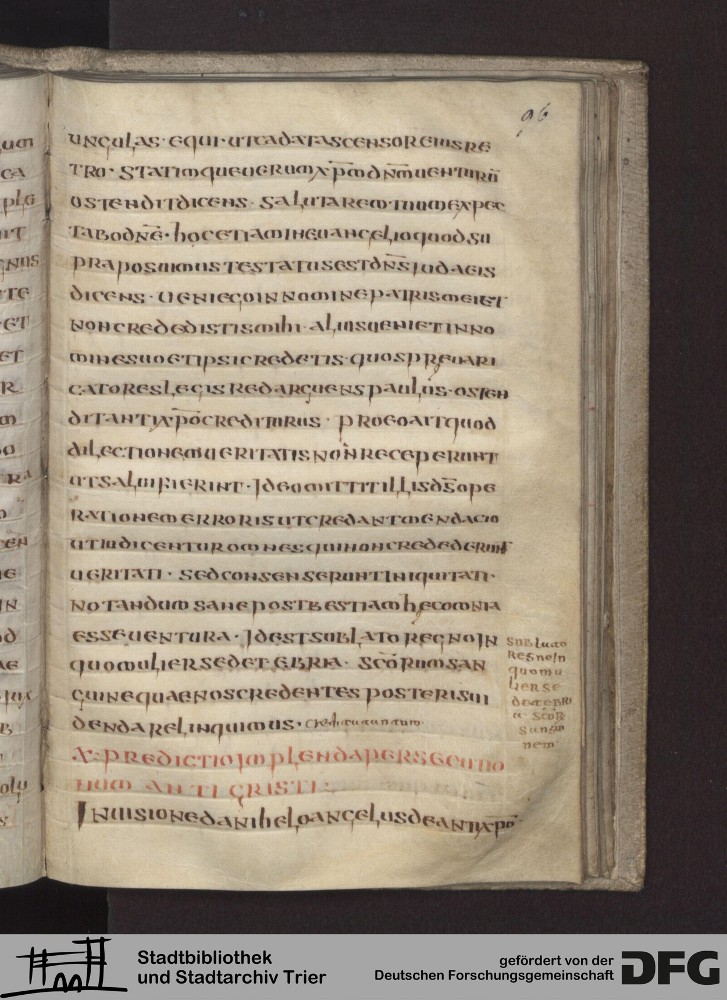 96
UNGULAS · EQUI · UT CADAT ASCENSOR EIUS RE
TRO · STATIMQUE UERUM XP̅M D̅NM̅ UENTURU̅
OSTENDIT DICENS · SALUTAREM TUUM EXPEC
TABO DNE̅ · HOC ETIAM IN EUANGELIO QUOD SU
PRA POSUIMUS TESTATUS EST DN̅S IUDAEIS
DICENS · UENI EGO IN NOMINE PATRIS MEI ET
NON CREDEDISTIS MIHI · ALIUS UENIET IN NO
MINE SUO ET IPSI CREDETIS · QUOS PREUARI
CATORES LEGIS REDARGUENS PAULUS · OSTEN
DIT ANTIXP̅O CREDITURUS · PRO EO AIT QUOD
DILECTIONEM UERITATIS NON RECEPERUNT
UT SALUI FIERINT · IDEO MITTIT ILLIS DS̅ OPE
RATIONEM ERRORIS UT CREDANT MENDACIO
UT IUDICENTUR OMNES QUI NON CREDEDERUNT
UERITATI · SED CONSENSERUNT INIQUITATI ·
NOTANDUM SANE POST BESTIAM HEC OMNIA
ESSE UENTURA · ID EST SUBLATO REGNO IN
QUO MULIER SEDET EBRIA · SCO̅RUM SAN
GUINE QUAE NOS CREDENTES POSTERIS UI
DENDA RELINQUIMUS ·
sublato
regno in
quo mu
lier se
det ebri
a scor̅
sangui
nem
X · PREDICTIO IMPLENDA PERSECUTIO
NUM ANTICRISTI :
IN UISIONE DANIHELO ANGELUS DE ANTIXP̅O ·
Stadtbibliothek
und Stadtarchiv Trier
gefördert von der
Deutschen Forschungsgemeinschaft
DFG